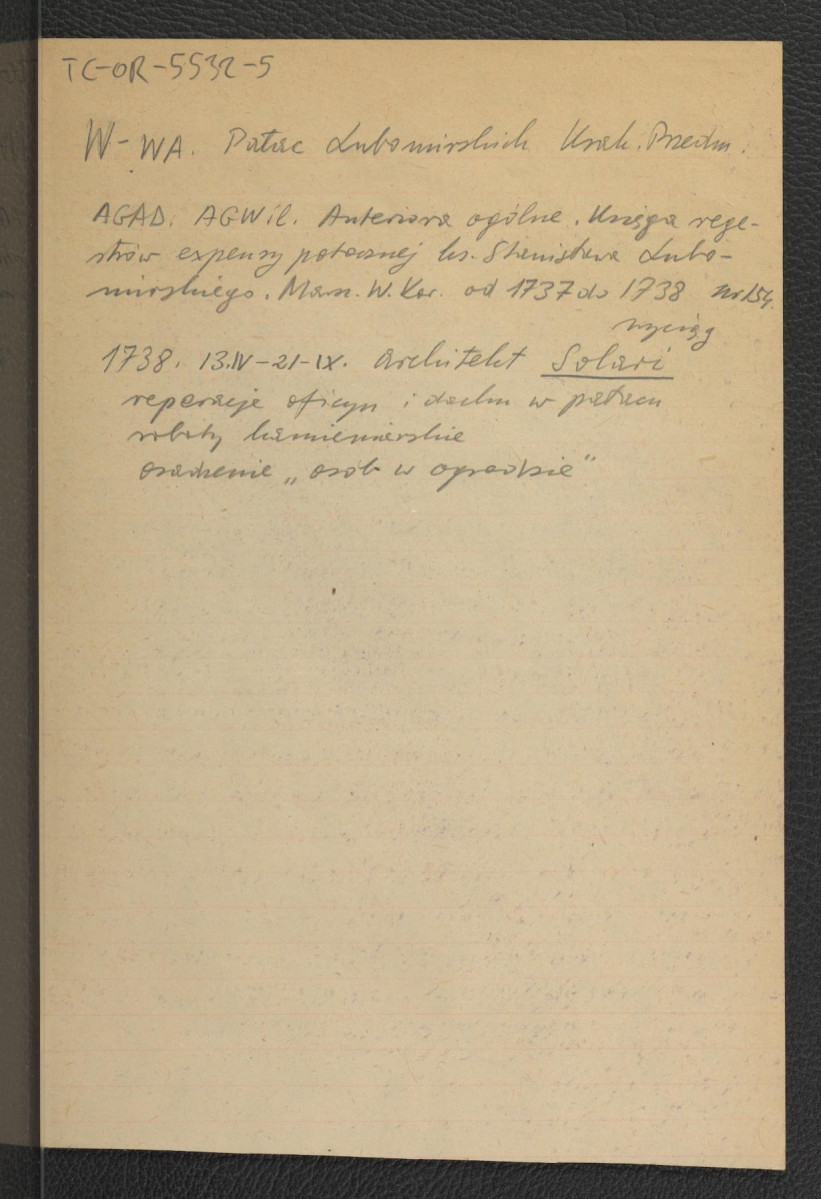 TC-OR-5532-5
W-WA. Pałac Lubomirskich Krak. Przedm.
AGAD. AGWil. Anteriora ogólne. Księga rege-
strów expensy potocznej ks. Stanisława Lubo-
mirskiego. Marsz. W. Kor. od 1737 do 1738 nr 154.
wyciąg
1738. 13.IV-21-IX. architekt Solari
reperacje oficyn i dachu w pałacu
roboty kamieniarskie
osadzenie „osób w ogrodzie”